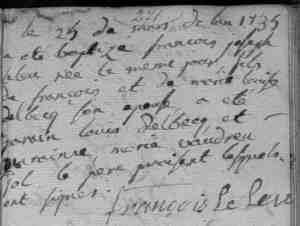 le 25 de mars de lan 1735
a eté baptize francois joseph
née le meme jour fils
de francois et de marie louise
delbecq son epouse a eté
parain louis delbecq et
marainne marie vandreu
le pere presant
ont signes. françois Le